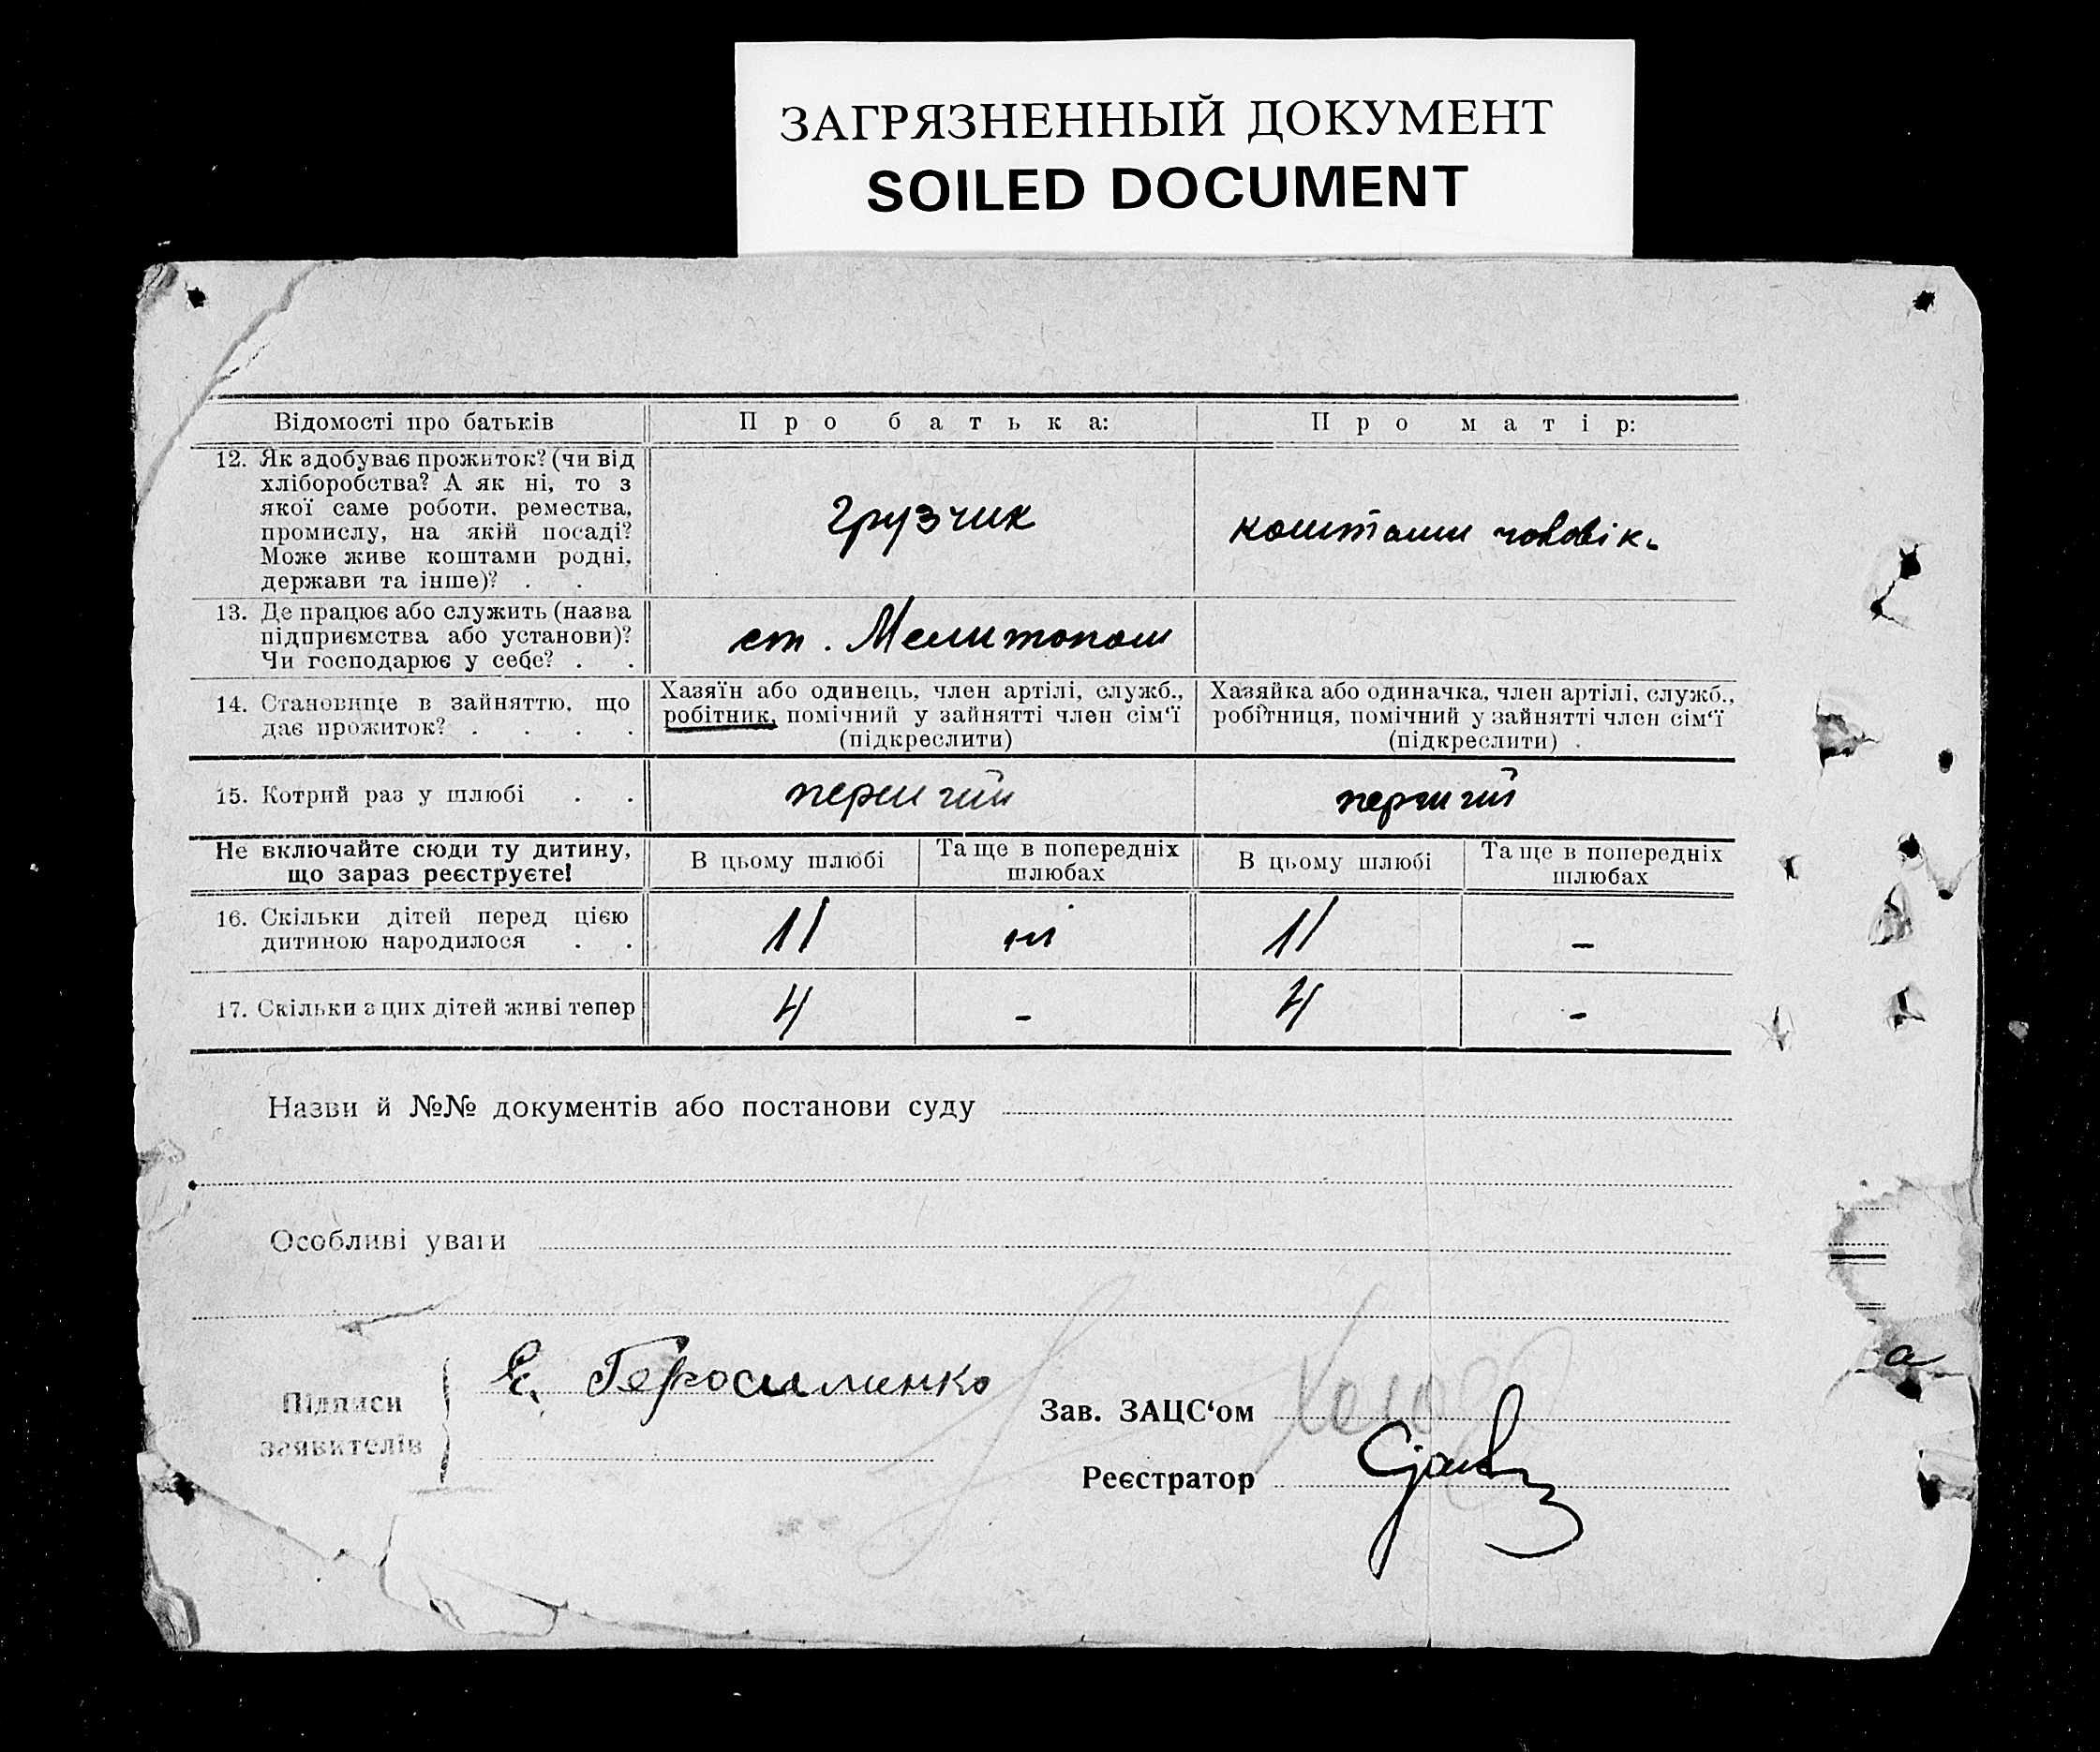 ЗАГРЯЗНЕННЫЙ ДОКУМЕНТ
SOILED DOCUMENT
Відомості про батьків
Про батька:
Про матір:
12. Як здобуває прожиток? (чи від
хліборобства? А як ні, то з
якої саме роботи, ремества,
промислу, на якій посаді?
Може живе коштами родні,
держави та інше)? . .
грузчик
коштами чоловік.
13. Де працює або служить (назва
підприємства або установи)?
Чи господарює у себе? . .
ст. Мелитополи
14. Становище в зайняттю, що
дає прожиток? . . . .
Хазяїн або одинець, член артілі, служб.,
робітник, помічний у зайнятті член сім'ї
(підкреслити)
Хазяйка або одиначка, член артілі, служб.,
робітниця, помічний у зайнятті член сім'ї
(підкреслити) .
15. Котрий раз у шлюбі . .
перший
перший
Не включайте сюди ту дитину,
що зараз реєструєте!
В цьому шлюбі
Та ще в попередніх
шлюбах
В цьому шлюбі
Та ще в попередніх
шлюбах
16. Скільки дітей перед цією
дитиною народилося . .
11
ні
11
–
17. Скільки з цих дітей живі тепер
4
–
4
–
Назви й №№ документів або постанови суду
Особливі уваги
Підписи
заявителів
Е. Геросименко
Зав. ЗАЦС'ом
Реєстратор
а